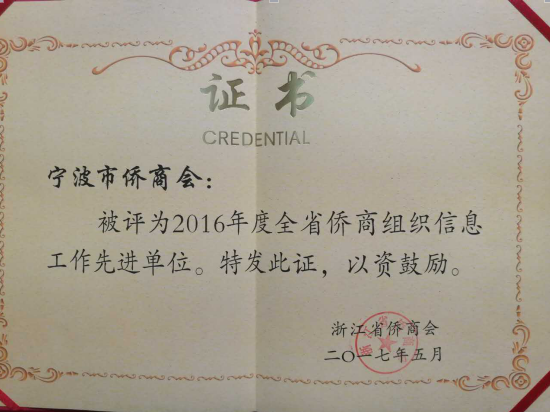 证书
CREDENTIAL
宁波市侨商会：
被评为2016年度全省侨商组织信息
工作先进单位。特发此证，以资鼓励。
浙江省侨商会
二〇一七年五月